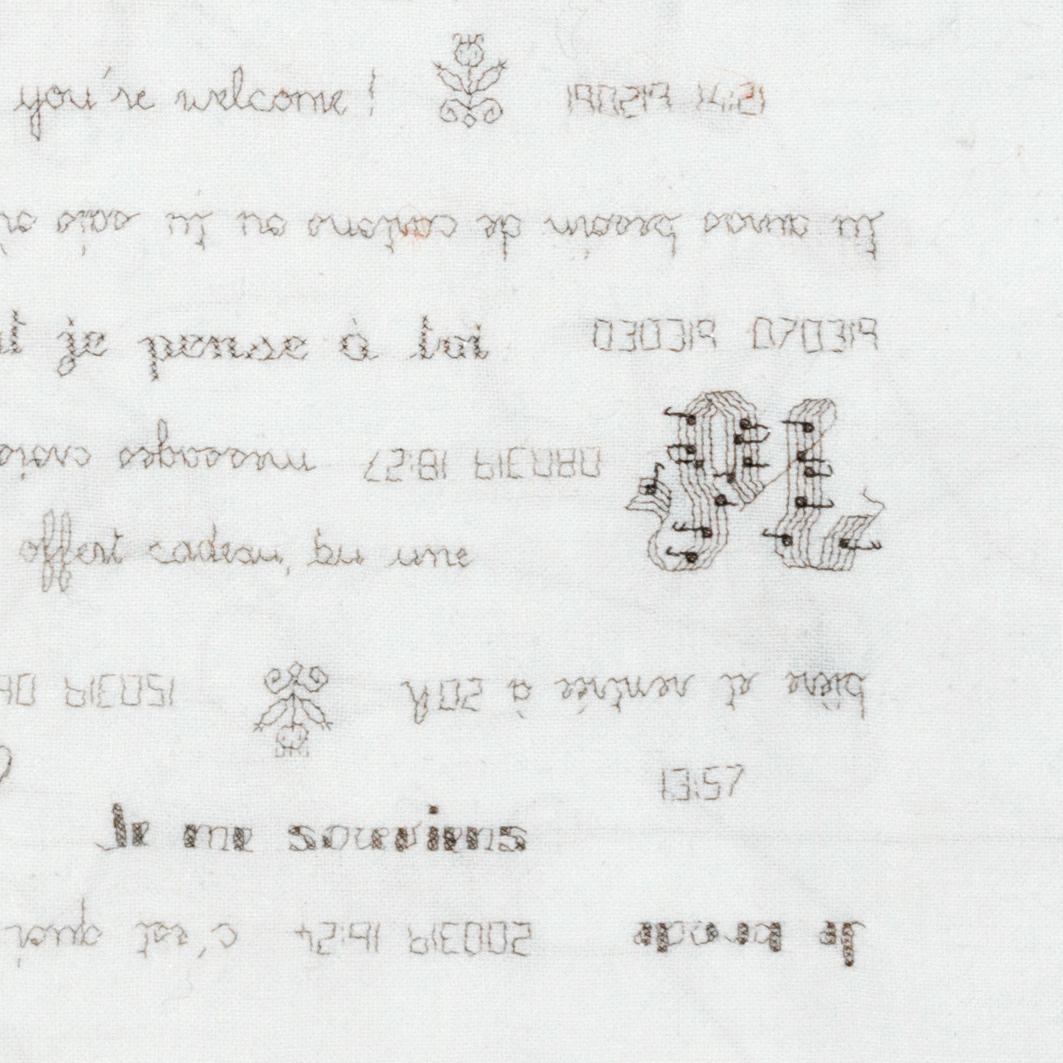 you're welcome ! 190219 14:21
Tu auras besoin de cotons ou tu sais
je pense à toi 030319 070319
080319 18:27 messages
PL
offert cadeau, bu une
bière et rentrée à 20h 150319
13:57
Je me souviens
Je brode 200319 19:24 c'est quoi